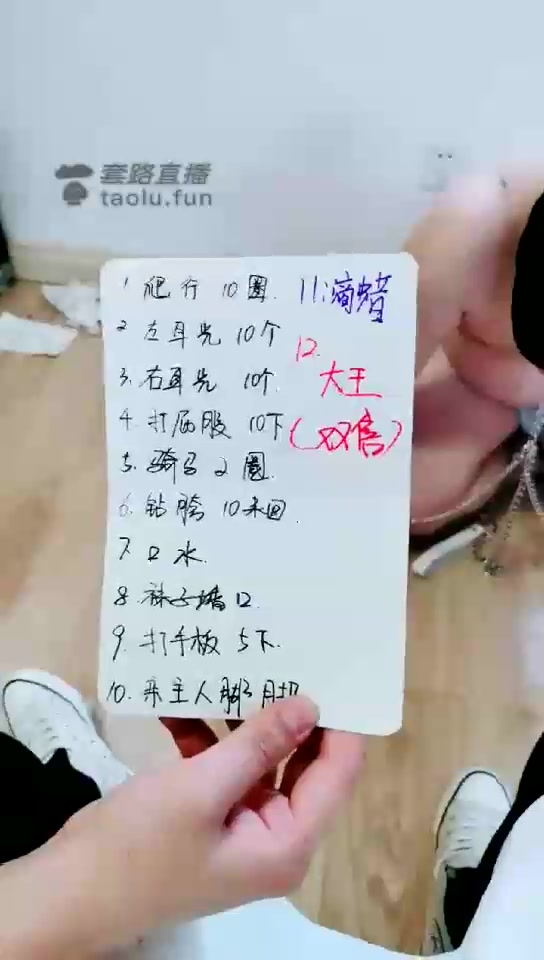 套路直播
taolu.fun
1 爬行 10圈.
2 左耳光 10个
3. 右耳光 10个.
4. 打屁股 10下
5. 骑马 2圈.
6. 钻胯 10来回.
7. 口水.
8. 袜子堵口.
9. 打手板 5下.
10. 亲主人脚
11. 滴蜡
12.
大王
(双倍)